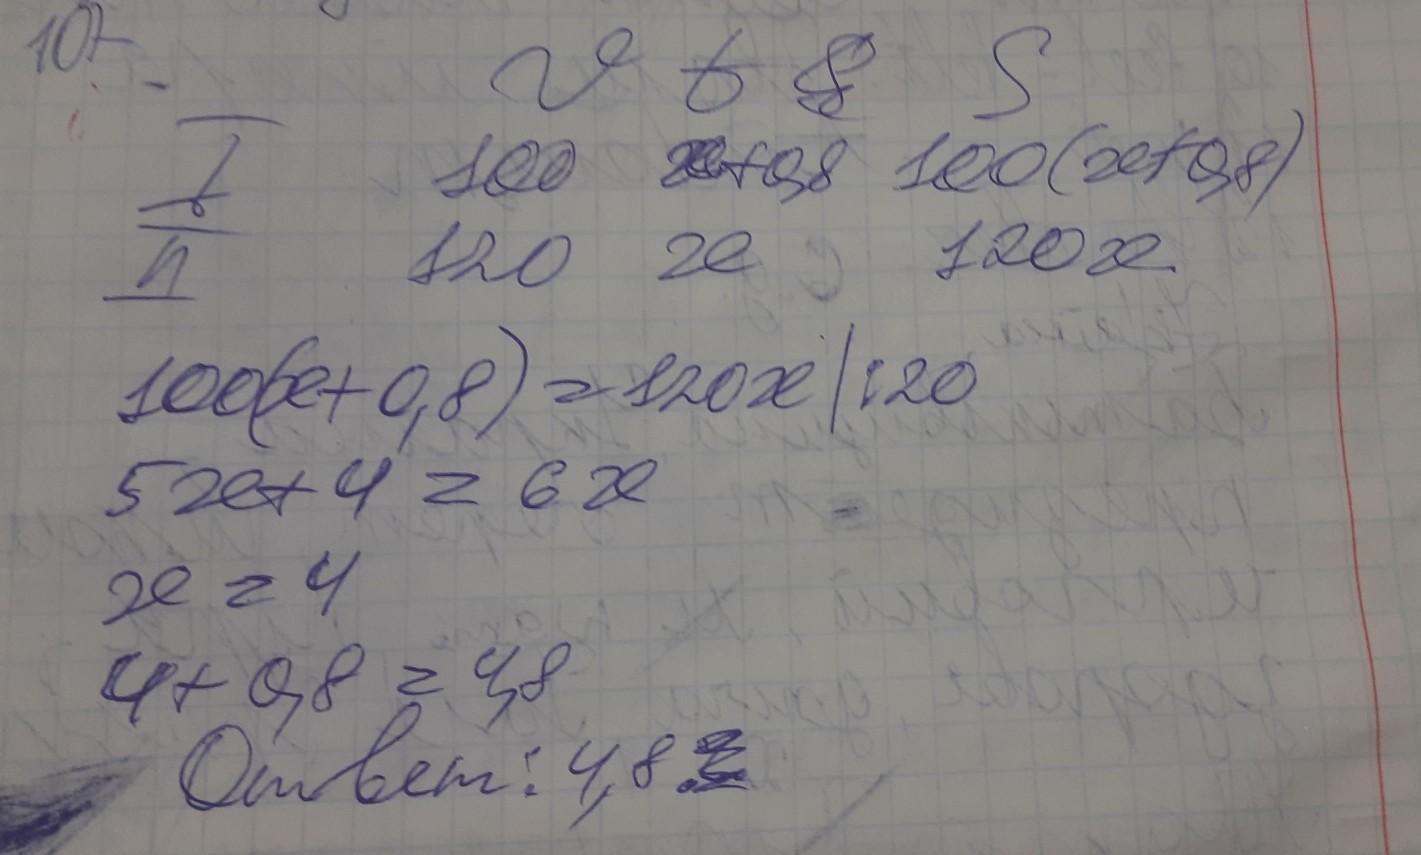 10)
v t S
I 100 x+0,8 100(x+0,8)
II 120 x 120x
100(x+0,8)=120x|:20
5x+4=6x
x=4
4+0,8=4,8
Ответ: 4,8